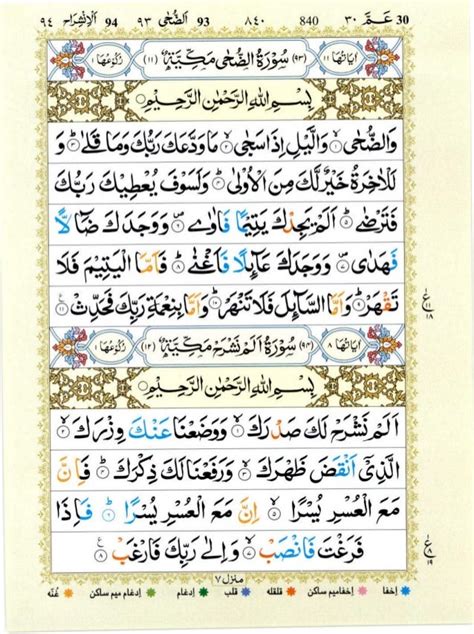 30 عَمَّ ٣٠ 840 ٨٤٠ 93 اَلضُّحٰى ٩٣ 94 اَلْاِنْشِرَاح ٩٤
اٰيَاتُهَا ١١ (٩٣) سُوْرَةُ الضُّحٰى مَكِّيَّةٌ (١١) رُكُوْعُهَا ١
بِسْمِ اللّٰهِ الرَّحْمٰنِ الرَّحِيْمِ
وَالضُّحٰى ۙ ١ وَالَّيْلِ اِذَا سَجٰى ۙ ٢ مَا وَدَّعَكَ رَبُّكَ وَمَا قَلٰى ؕ ٣ وَ
لَلْاٰخِرَةُ خَيْرٌ لَّكَ مِنَ الْاُوْلٰى ؕ ٤ وَلَسَوْفَ يُعْطِيْكَ رَبُّكَ
فَتَرْضٰى ؕ ٥ اَلَمْ يَجِدْكَ يَتِيْمًا فَاٰوٰى ۪ ٦ وَوَجَدَكَ ضَآلًّا
فَهَدٰى ۪ ٧ وَوَجَدَكَ عَآىِٕلًا فَاَغْنٰى ؕ ٨ فَاَمَّا الْيَتِيْمَ فَلَا
تَقْهَرْ ؕ ٩ وَاَمَّا السَّآىِٕلَ فَلَا تَنْهَرْ ؕ ١٠ وَاَمَّا بِنِعْمَةِ رَبِّكَ فَحَدِّثْ ١١
١١ ع ١٨
اٰيَاتُهَا ٨ (٩٤) سُوْرَةُ اَلَمْ نَشْرَحْ مَكِّيَّةٌ (١٢) رُكُوْعُهَا ١
بِسْمِ اللّٰهِ الرَّحْمٰنِ الرَّحِيْمِ
اَلَمْ نَشْرَحْ لَكَ صَدْرَكَ ۙ ١ وَوَضَعْنَا عَنْكَ وِزْرَكَ ۙ ٢
الَّذِيْۤ اَنْقَضَ ظَهْرَكَ ۙ ٣ وَرَفَعْنَا لَكَ ذِكْرَكَ ؕ ٤ فَاِنَّ
مَعَ الْعُسْرِ يُسْرًا ۙ ٥ اِنَّ مَعَ الْعُسْرِ يُسْرًا ؕ ٦ فَاِذَا
فَرَغْتَ فَانْصَبْ ۙ ٧ وَاِلٰى رَبِّكَ فَارْغَبْ ٨
٨ ع ١٩
منزل ٧
اخفا اخفامیم ساکن قلقله قلب ادغام ادغام میم ساکن غنّه